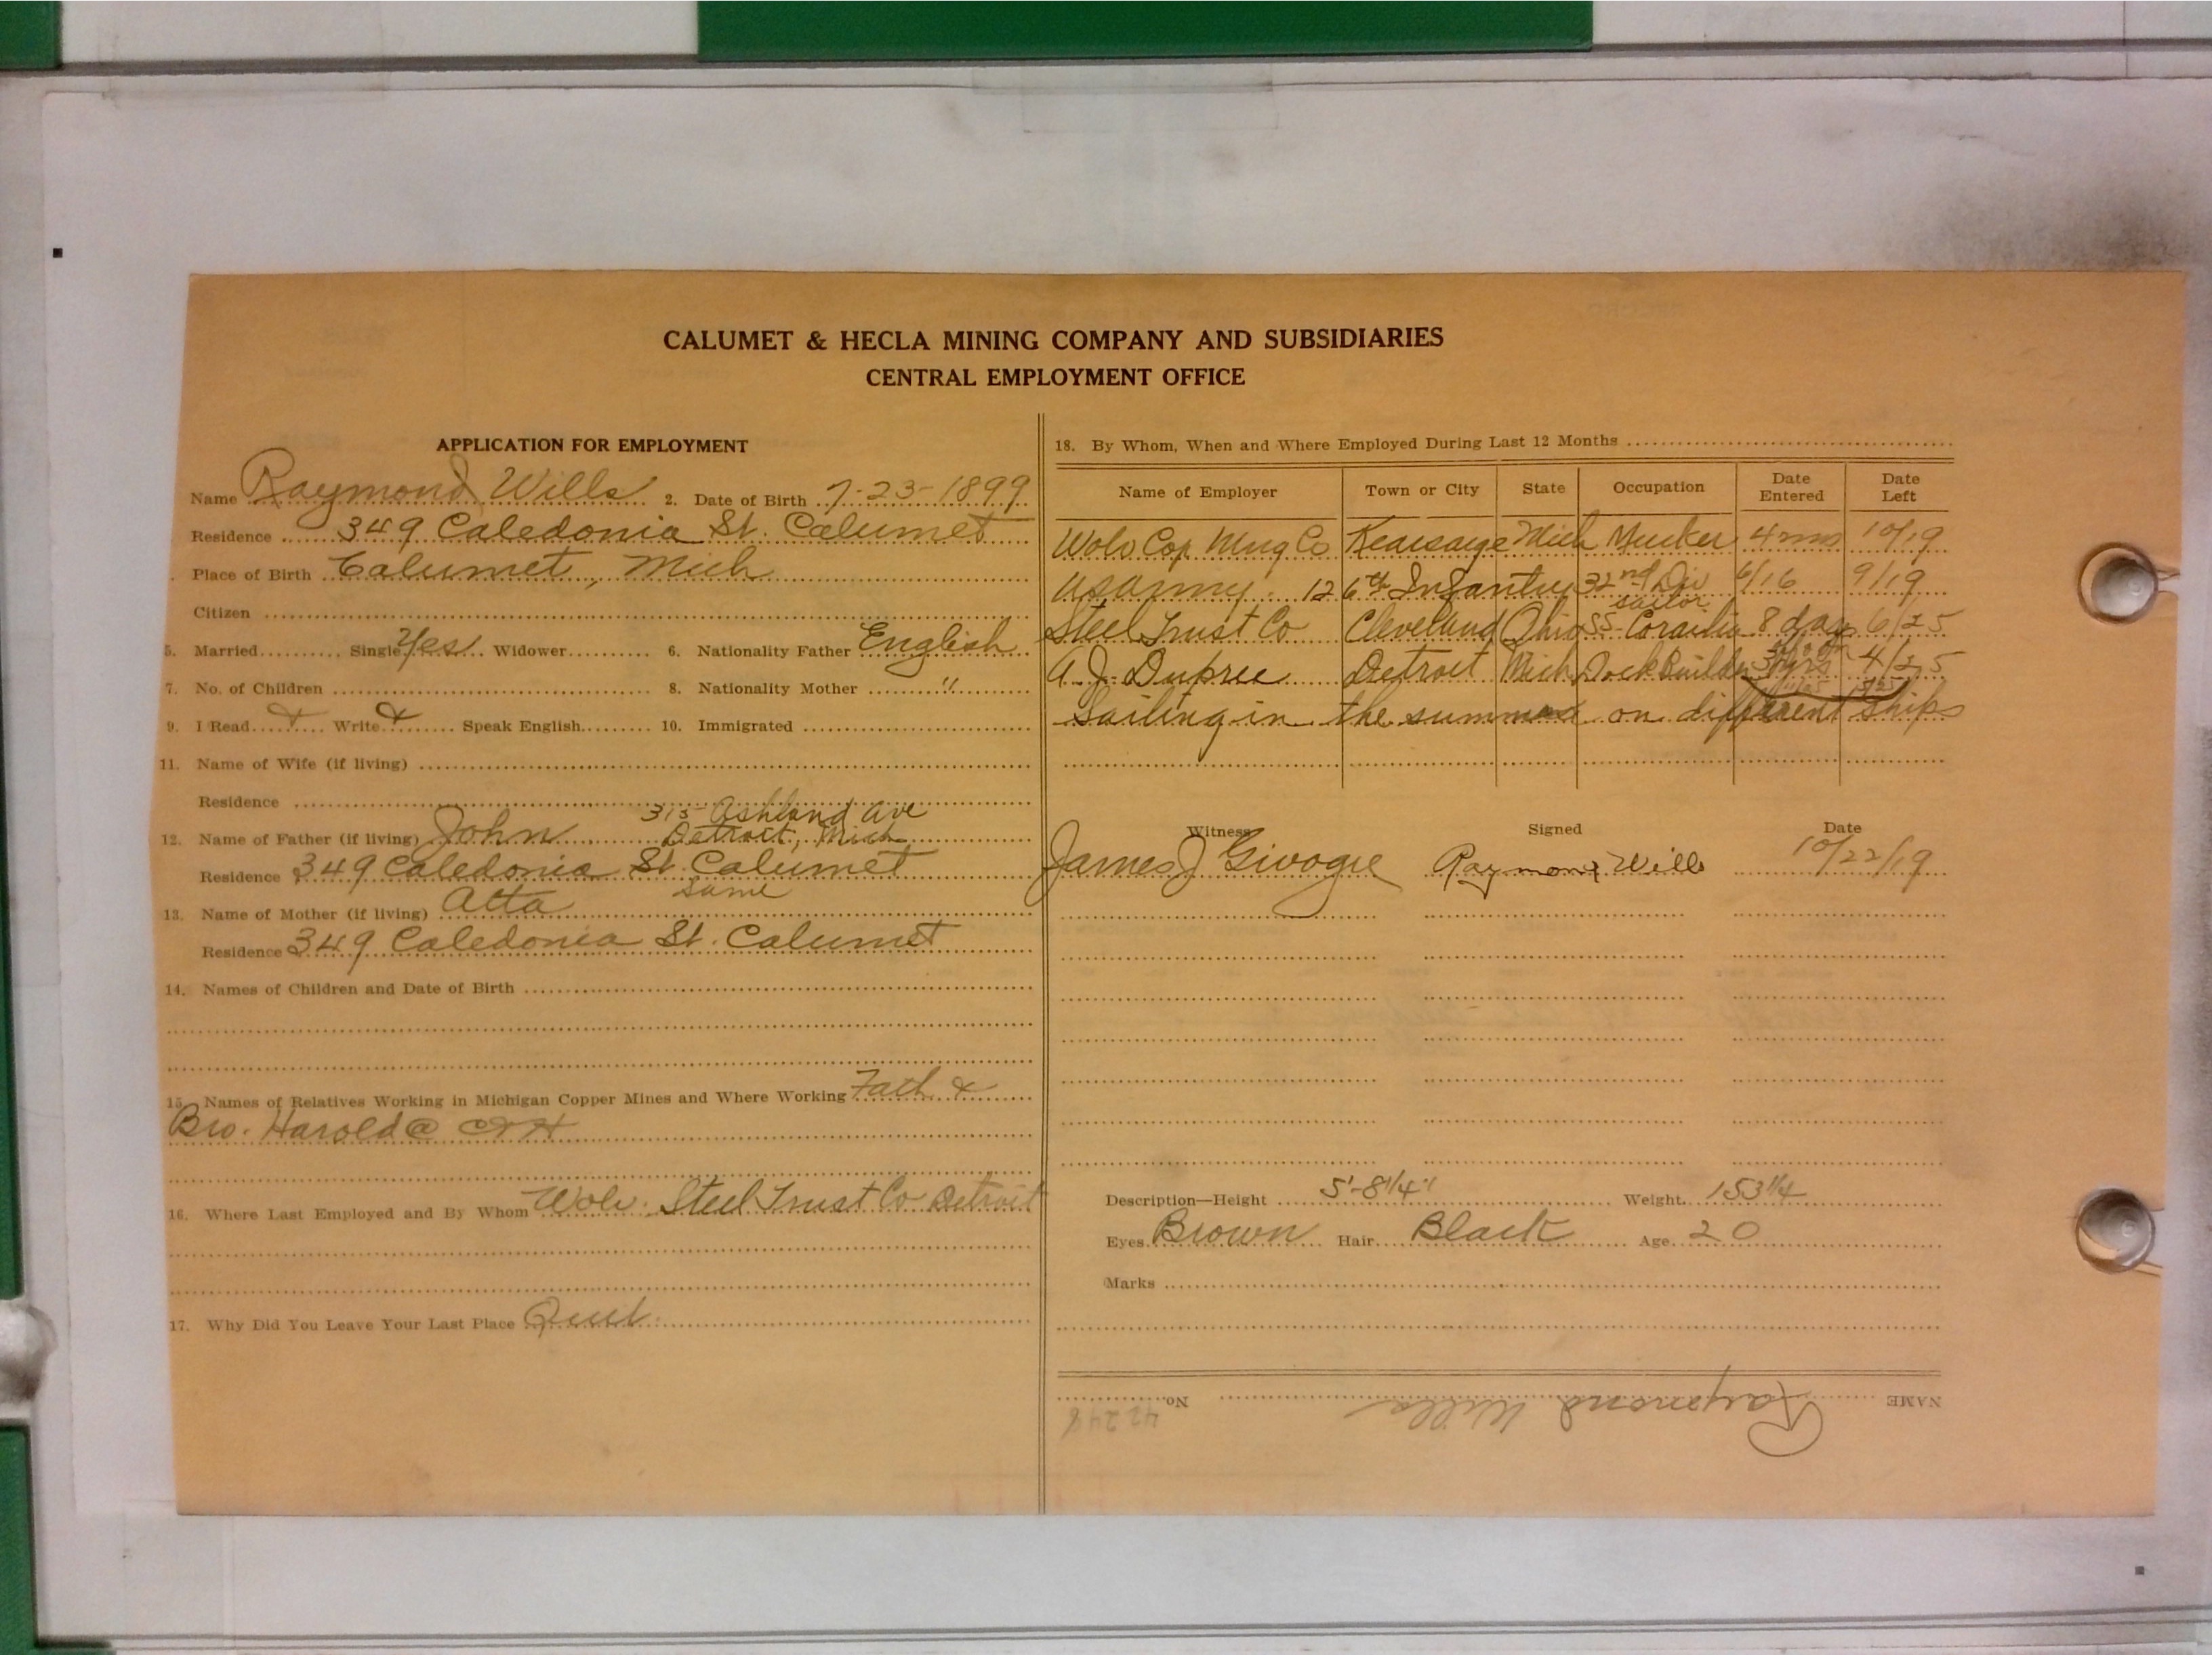 CALUMET & HECLA MINING COMPANY AND SUBSIDIARIES
CENTRAL EMPLOYMENT OFFICE
APPLICATION FOR EMPLOYMENT
Name Raymond Wills 2. Date of Birth 7-23-1899
Residence 349 Caledonia St. Calumet
Place of Birth Calumet, Mich
Citizen
5. Married Single Yes Widower 6. Nationality Father English
7. No. of Children 8. Nationality Mother "
9. I Read Write Speak English 10. Immigrated
11. Name of Wife (if living)
Residence
315 Ashland Ave
12. Name of Father (if living) John Detroit, Mich
Residence 349 Caledonia St. Calumet
same
13. Name of Mother (if living) Atta
Residence 349 Caledonia St. Calumet
14. Names of Children and Date of Birth
15. Names of Relatives Working in Michigan Copper Mines and Where Working Fath &
Bro. Harold @ C&H
16. Where Last Employed and By Whom Wolv. Steel Trust Co Detroit
17. Why Did You Leave Your Last Place Quit.
18. By Whom, When and Where Employed During Last 12 Months
Name of Employer Town or City State Occupation Date Entered Date Left
Wolv Cop Mng Co Kearsarge Mich 4 mos 10/19
US Army. 126th Infantry 32nd Div 6/16 9/19
sailor
Steel Trust Co Cleveland Ohio SS 8 days 6/25
A. J. Dupree Detroit Mich Dock Builder 4/25
Sailing in the summer on different ships
Witness Signed Date
James J Raymond Wills 10/22/19
Description—Height 5'-8 1/4" Weight 153 1/4
Eyes Brown Hair Black Age 20
Marks
NAME Raymond Wills No. 42248